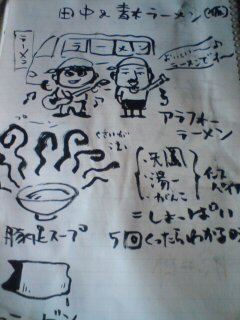 田中&青木ラーメン(仮)
ラーメン
ラーメン
おいしいー
ラーメンですー
アラフォー
ラーメン
プーン
くさいが
うまい
天園
湯一
がんこ
インス
パイア
=しょっぱい
豚足スープ
5回くったらわかるの